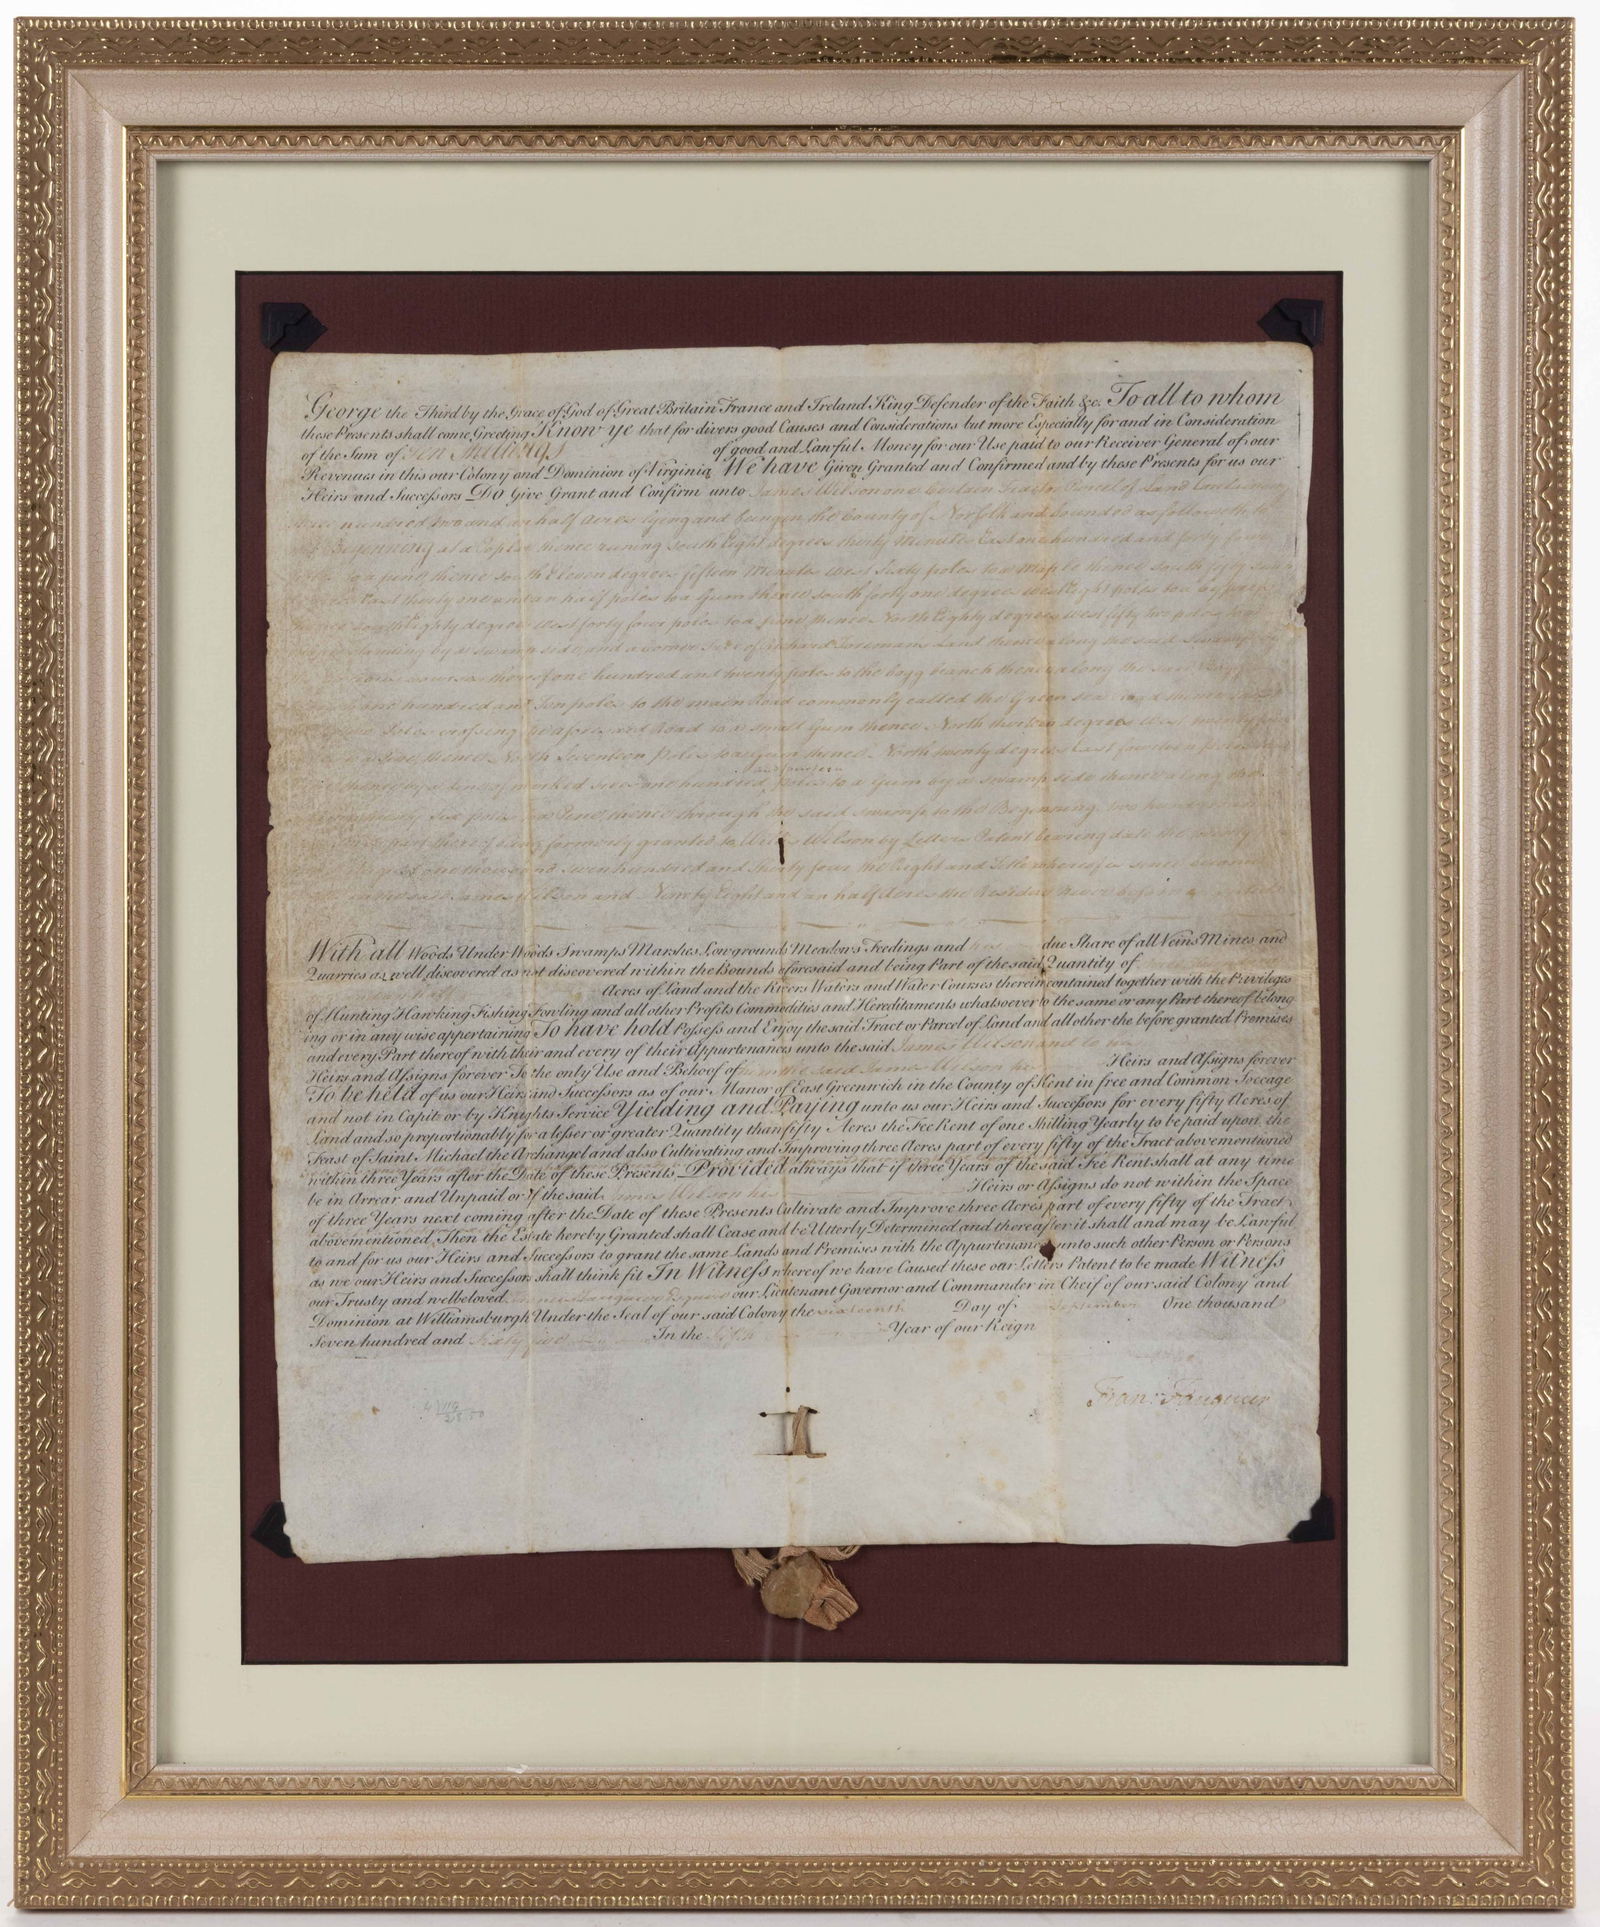 George the Third by the Grace of God of Great Britain France and Ireland King Defender of the Faith &c. To all to whom
these Presents shall come Greeting Know ye that for divers good Causes and Considerations but more Especially for and in Consideration
of the Sum of Ten Shillings of good and Lawful Money for our Use paid to our Receiver General of our
Revenues in this our Colony and Dominion of Virginia We have Given Granted and Confirmed and by these Presents for us our
Heirs and Successors Do Give Grant and Confirm unto James Wilson one Certain Tract or Parcel of Land Containing
hundred two and an half Acres lying and being in the County of Norfolk and bounded as followeth to
Beginning at a Poplar thence runing South Eight degrees thirty Minutes East one hundred and forty four
to a pine thence South Eleven degrees fifteen Minutes West Sixty poles to a Maple thence South fifty
East thirty one and an half poles to a Gum thence South forty one degrees West Eight poles to a Cypress
thence South Eighty degrees West forty four poles to a pine thence North Eighty degrees West fifty two poles to a
standing by a Swamp side and a corner Tree of Richard Foremans Land thence along the said Swamp
thereof one hundred and twenty poles to the bogg branch thence along the said
one hundred and Ten poles to the main Road commonly called the Green Sea road thence
Poles crossing the aforesaid Road to a small Gum thence North thirteen degrees West twenty
to a pine thence North Seventeen poles to a Gum thence North twenty degrees East fourteen poles
and fourteen
thence by a line of marked trees one hundred poles to a Gum by a Swamp side thence along the
Six poles to a Pine thence through the said Swamp to the Beginning two hundred
part thereof being formerly granted to Willis Wilson by Letters Patent bearing date the twenty
one thousand Seven hundred and thirty four the Right and Title whereof is since become
in the said James Wilson and Ninety Eight and an half Acres the Residue never before
With all Woods Under Woods Swamps Marshes Lowgrounds Meadows Feedings and his due Share of all Veins Mines and
Quarries as well discovered as not discovered within the Bounds aforesaid and being Part of the said Quantity of
Acres of Land and the Rivers Waters and Water Courses therein contained together with the Privileges
of Hunting Hawking Fishing Fowling and all other Profits Commodities and Hereditaments whatsoever to the same or any Part thereof belong
ing or in any wise appertaining To have hold Possess and Enjoy the said Tract or Parcel of Land and all other the before granted Premises
and every Part thereof with their and every of their Appurtenances unto the said James Wilson and to his
Heirs and Assigns forever To the only Use and Behoof of him the said James Wilson his Heirs and Assigns forever
To be held of us our Heirs and Successors as of our Manor of East Greenwich in the County of Kent in free and Common Soccage
and not in Capite or by Knights Service Yielding and Paying unto us our Heirs and Successors for every fifty Acres of
Land and so proportionably for a lesser or greater Quantity than fifty Acres the Fee Rent of one Shilling Yearly to be paid upon the
Feast of Saint Michael the Archangel and also Cultivating and Improving three Acres part of every fifty of the Tract abovementioned
within three Years after the Date of these Presents Provided always that if three Years of the said Fee Rent shall at any time
be in Arrear and Unpaid or if the said James Wilson his Heirs or Assigns do not within the Space
of three Years next coming after the Date of these Presents Cultivate and Improve three Acres part of every fifty of the Tract
abovementioned, Then the Estate hereby Granted shall Cease and be Utterly Determined and thereafter it shall and may be Lawful
to and for us our Heirs and Successors to grant the same Lands and Premises with the Appurtenances unto such other Person or Persons
as we our Heirs and Successors shall think fit In Witness whereof we have Caused these our Letters Patent to be made Witness
our Trusty and welbeloved Francis Fauquier Esquire our Lieutenant Governor and Commander in Cheif of our said Colony and
Dominion at Williamsburgh Under the Seal of our said Colony the sixteenth Day of September One thousand
Seven hundred and Sixty five In the fifth Year of our Reign
Fran: Fauquier